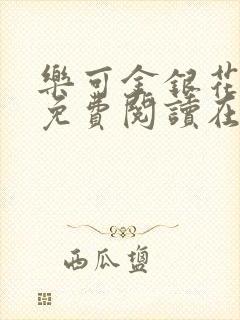 樂可金銀花
免費閱讀在
西瓜鹽